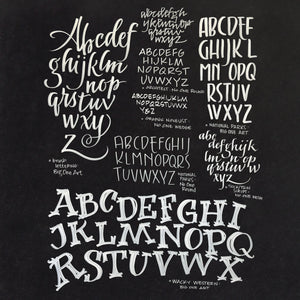 Abcdef
ghijklm
nop
qrstuv
wxy
z
• brush
lettering •
Big One Art
abcdefg
hijklmn
opqrstuv
wxyz
ABCDEFG
HIJKLM
NOPQRST
UVWXYZ
• architect • no one round
ABCDEFGHIJKLM
NOPQRSTUVWX
YZ
• orange honeust
• no one wedge
ABCDEFGHIJ
KLMNOPQRS
TUVWXYZ
• national parks •
no one round
ABCDE
FGHIJKL
MNOPQ
RSTUV
WXYZ
• national parks •
Big One Art
abcdef
ghijklm
nopqrst
uvw
xyz
script •
ABCDEFGHI
JKLMNOPQ
RSTUVWXYZ
• wacky western •
Big One Art